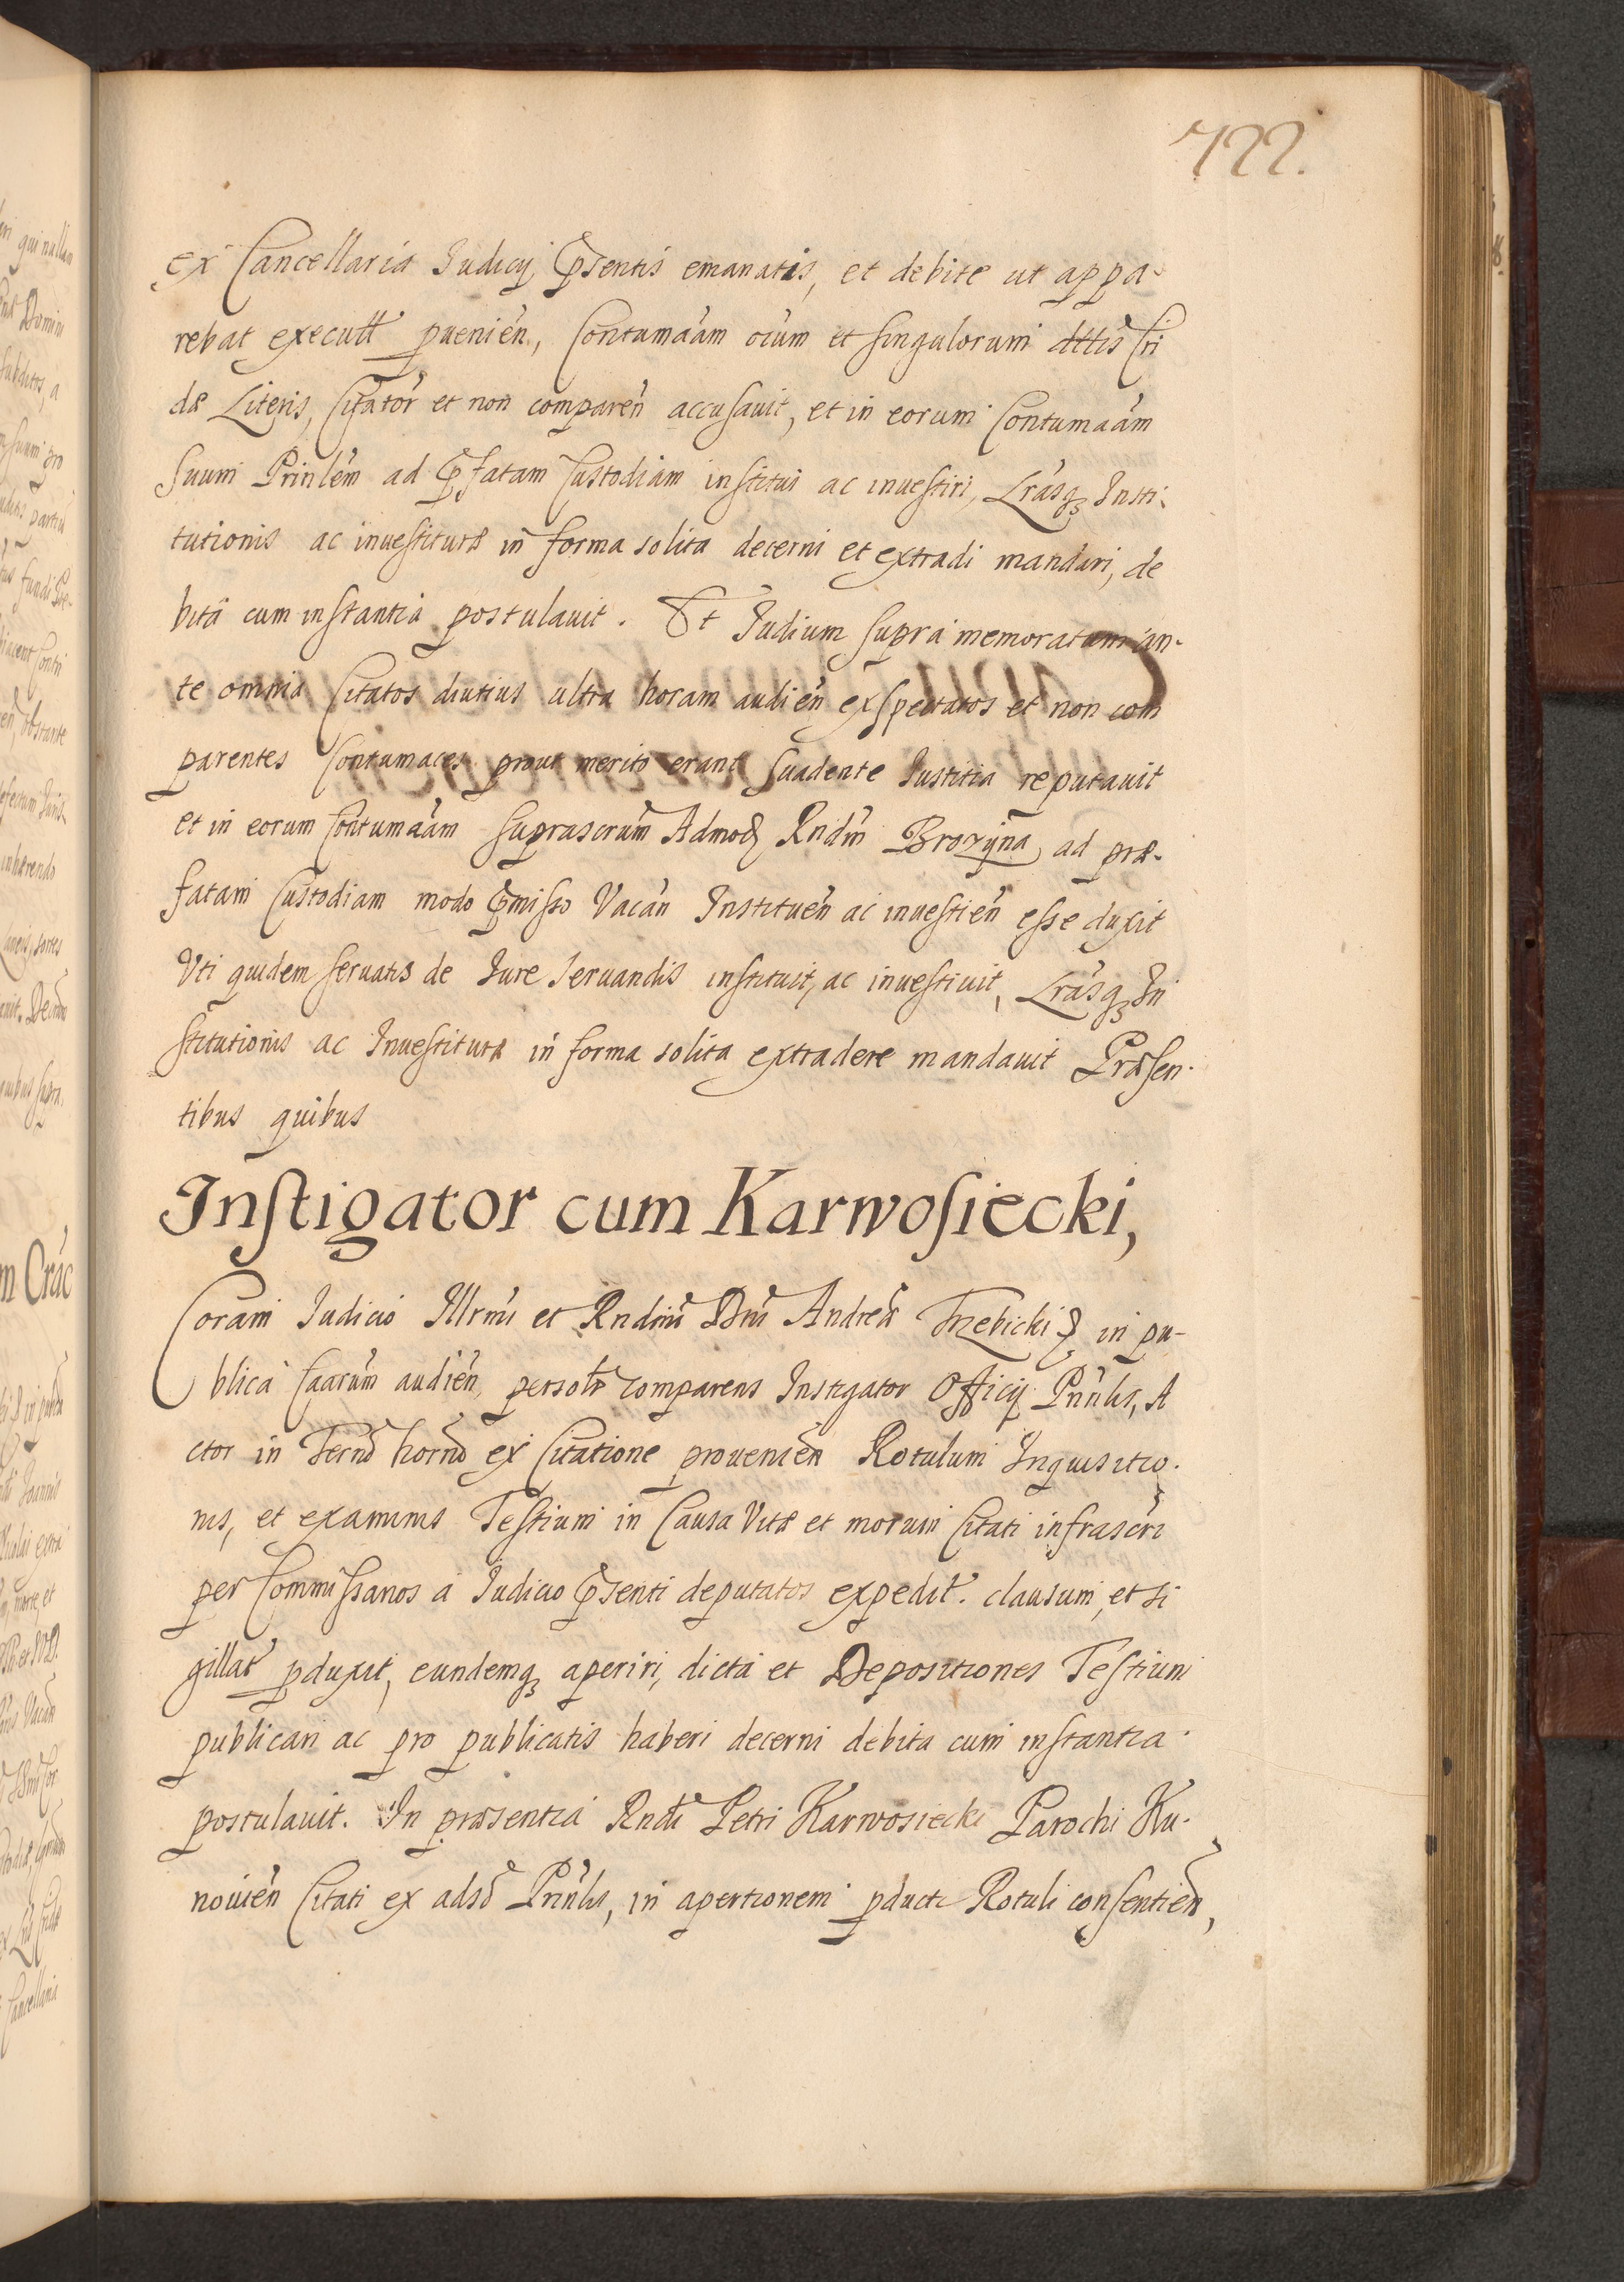 722.
ex Cancellaria Judicij Pp̃sentis emanatis, et debite ut appa-
rebat execut̃t̃ pueniẽn, Contumãam oĩum et singulorum dt̃tis Cri
dæ Literis, Citatõr et non comparẽn accusauit, et in eorum Contumãam
suum Prinlẽm ad p̃fatam Custodiam institui ac inuestiri, Lrãsqȝ Insti-
tutionis ac inuestituræ in forma solita decerni et extradi mandari, de
bitâ cum instantia postulauit. Et Judium supra memoratum an-
te omnia Citatos diutius ultra horam audiẽn exspectatos et non com
parentes Contumaces prout merito erant suadente Iustitia reputauit
et in eorum Contumãam suprascrũm Admod Rndũm Brozÿna ad præ-
fatam Custodiam modo p̃misso Vacãn Instituẽn ac inuestiẽn esse duxit
Vti quidem seruatis de Iure seruandis instituit, ac inuestiuit, Lrãsqȝ In
stitutionis ac Inuestituræ in forma solita extradere mandauit Præsen-
tibus quibus
Instigator cum Karwosiecki,
Coram Iudicio Illr̃mi et Rndm̃i Dñi Andreæ Trzebicki & in pu-
blica faarũm audiẽn, persolr̃ comparens Instigator Officij Pñnlis, A
ctor in Terñd horñd ex Citatione proueniẽn Rotulum Inquisitio-
nis, et examinis Testium in Causa Vitæ et morum Citati infrascr̃i
per Commissarios a Iudicio p̃senti deputatos expedit̃. clausum, et si
gillat̃ pduxit, eundemqȝ aperiri, dicta et Depositiones Testium
publicari ac pro publicatis haberi decerni debita cum instantia
postulauit. In præsentia Rndi Petri Karwosiecki Parochi Ku-
nouiẽn Citati ex adsõ Pñnlis, in apertionem pducti Rotuli consentiẽn,